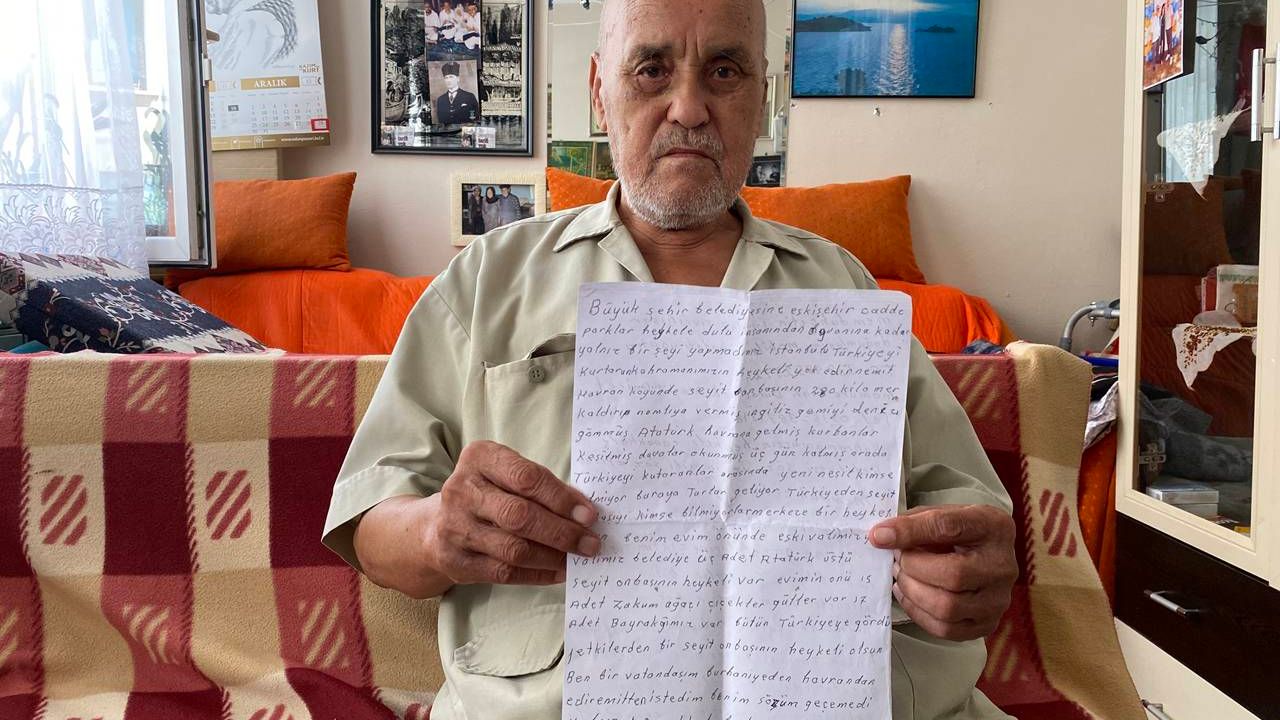 KAZIM KURT
ARALIK
Büyük şehir belediyesine eskişehir cadde
parklar heykele dolu insanından hayvanına kadar
yalnız bir şeyi yapmadınız istanbulu Türkiyeyi
Kurtaran kahramanımızın heykeli yok edirnemit
Havran köyünde seyit onbaşının 280 kilo mer
kaldırıp namluya vermiş ingiliz gemiyi denize
gömmüş. Atatürk havrana gelmiş kurbanlar
kesilmiş davalar okunmuş üç gün kalmış orada
Türkiyeyi kutaranlar arasında yeni nesil kimse
bilmiyor buraya Turlar geliyor Türkiyeden seyit
kimse bilmiyorlar merkeze bir heykel
benim evim önünde eski valimiz
valimiz belediye üç Adet Atatürk üstü
Seyit onbaşının heykeli var evimin önü 15
Adet Zakum ağaçı çiçekler güller var 17
Adet Bayrakğımız var bütün Türkiyeye gördü
yetkilerden bir seyit onbaşının heykeli olsun
Ben bir vatandaşım burhaniyeden havrandan
ediremitten istedim benim sözüm geçemedi